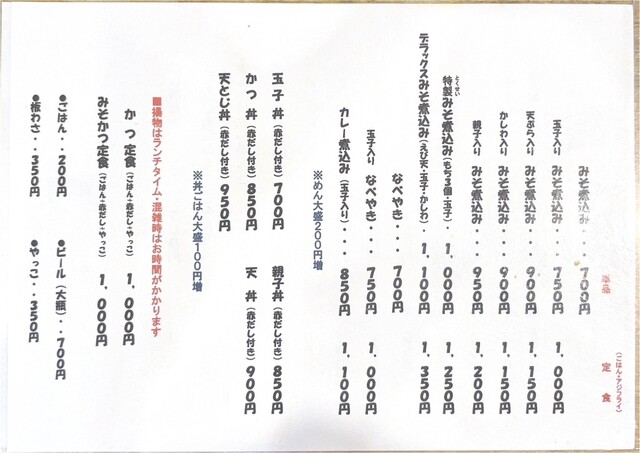 単品
定食
(ごはん・アジフライ)
みそ煮込み・・・700円
玉子入り みそ煮込み・・・750円 1,000円
天ぷら入り みそ煮込み・・・900円 1,150円
かしわ入り みそ煮込み・・・900円 1,150円
親子入り みそ煮込み・・・950円 1,200円
とくせい
特製みそ煮込み(もち3個・玉子)・1,000円 1,250円
デラックスみそ煮込み(えび天・玉子・かしわ)1,100円 1,350円
なべやき・・・700円
玉子入り なべやき・・・750円 1,000円
カレー煮込み(玉子入り)・・・850円 1,100円
※めん大盛200円増
玉子丼(赤だし付き)700円 親子丼(赤だし付き)850円
かつ丼(赤だし付き)850円 天丼(赤だし付き)900円
天とじ丼(赤だし付き)950円
※丼ごはん大盛100円増
■揚物はランチタイム・混雑時はお時間がかかります
かつ定食(ごはん・赤だし・やっこ)1,000円
みそかつ定食(ごはん・赤だし・やっこ)1,000円
●ごはん・・200円 ●ビール(大瓶)・・700円
●板わさ・・350円 ●やっこ・・350円